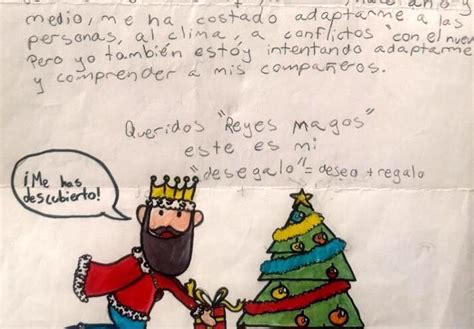 medio, me ha costado adaptarme a las
personas, al clima, a conflictos "con el nuev
Pero yo también estoy intentando adaptarme
y comprender a mis compañeros.
Queridos "Reyes Magos"
este es mi
"desegalo" = deseo + regalo
¡Me has
descubierto!